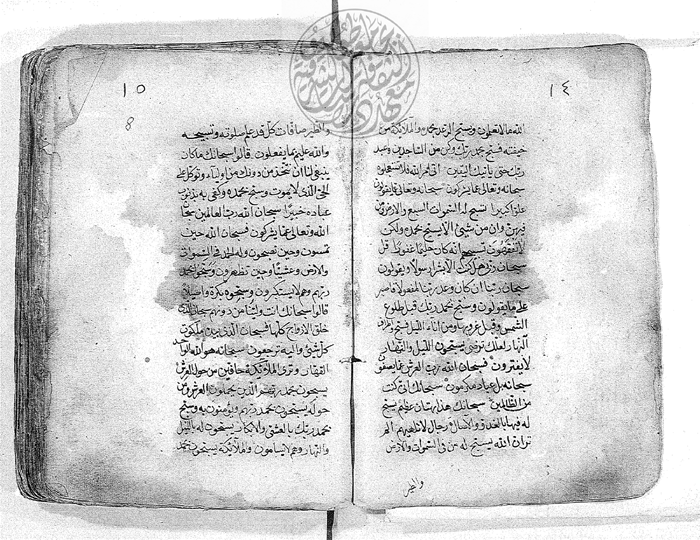 ١٤
الله مالا تعلمون ويسبح الرعد بحمده والملائكة من
خيفته فسبح بحمد ربك وكن من الساجدين واعبد
ربك حتى يأتيك اليقين اتى امر الله فلا تستعجلوه
سبحانه وتعالى عما يشركون سبحانه وتعالى عما يقولون
علوا كبيرا تسبح له السموات السبع والارض ومن
فيهن وان من شئ الا يسبح بحمده ولكن
لا تفقهون تسبيحهم انه كان حليما غفورا قل
سبحان ربى هل كنت الا بشرا رسولا ويقولون
سبحان ربنا ان كان وعد ربنا لمفعولا فاصبر
على ما يقولون وسبح بحمد ربك قبل طلوع
الشمس وقبل غروبها ومن اناء الليل فسبح واطراف
النهار لعلك ترضى يسبحون الليل والنهار
لا يفترون فسبحان الله رب العرش عما يصفون
سبحانه بل عباد مكرمون سبحانك انى كنت
من الظالمين سبحانك هذا بهتان عظيم يسبح
له فيها بالغدو والآصال رجال لا تلهيهم الم
تر ان الله يسبح له من فى السموات والارض
والطير
١٥
8
والطير صافات كل قد علم صلوته وتسبيحه
والله عليم بما يفعلون قالوا سبحانك ما كان
ينبغى لنا ان نتخذ من دونك من اولياء وتوكل على
الحى الذى لا يموت وسبح بحمده وكفى به بذنوب
عباده خبيرا سبحان الله رب العالمين سبحان
الله وتعالى عما يشركون فسبحان الله حين
تمسون وحين تصبحون وله الحمد فى السموات
والارض وعشيا وحين تظهرون وسبحوا بحمد
ربهم وهم لا يستكبرون وسبحوه بكرة واصيلا
قالوا سبحانك انت ولينا من دونهم سبحان الذى
خلق الازواج كلها فسبحان الذى بيده ملكوت
كل شئ واليه ترجعون سبحانه هو الله الواحد
القهار وترى الملائكة حافين من حول العرش
يسبحون بحمد ربهم الذين يحملون العرش ومن
حوله يسبحون بحمد ربهم ويؤمنون به وسبح
بحمد ربك بالعشى والابكار يسبحون له بالليل
والنهار وهم لا يسامون والملائكة يسبحون بحمد